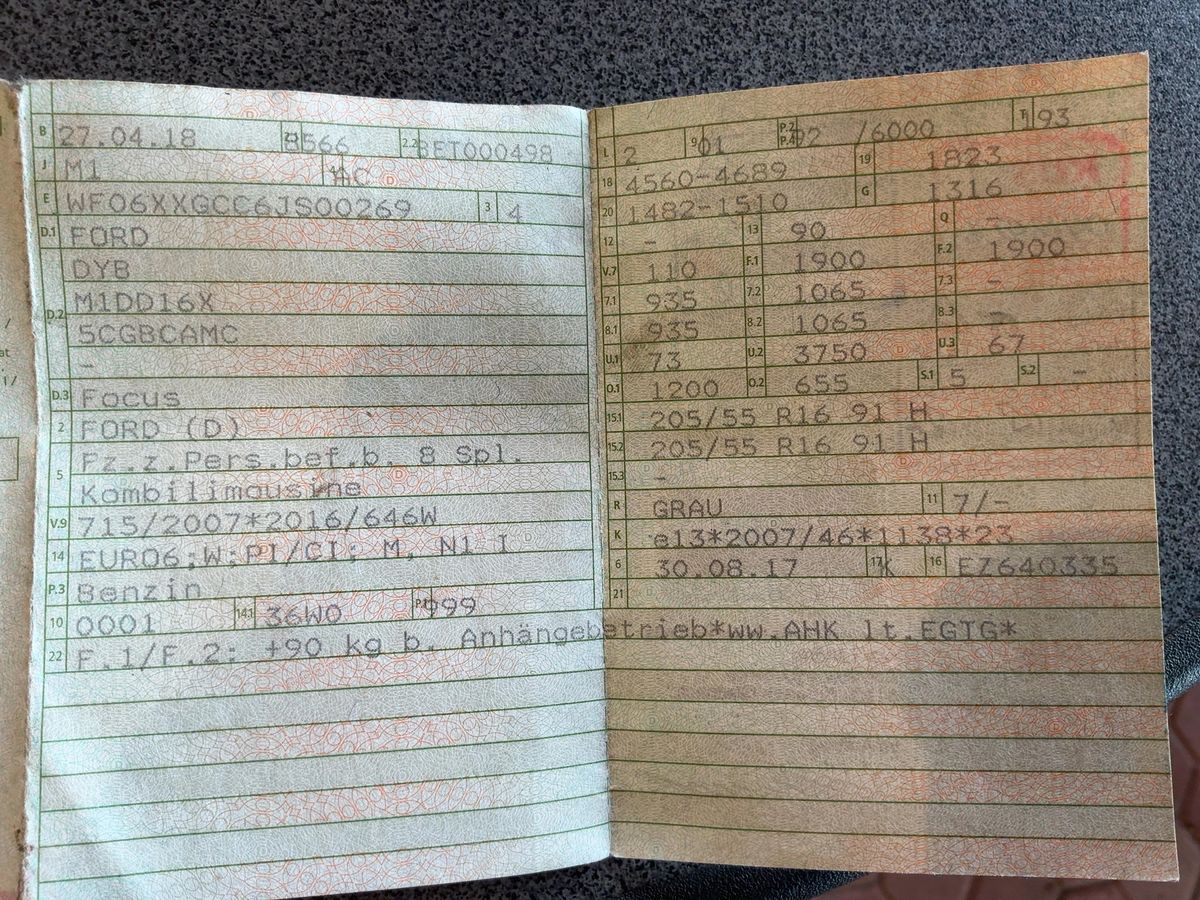 B 27.04.18 2.1 8566 2.2 BFT000498
J M1 4 AC
E WF06XXGCC6JS00269 3 4
D.1 FORD
DYB
D.2 M1DD16X
5CGBCAMC
-
D.3 Focus
2 FORD (D)
Fz.z.Pers.bef.b. 8 Spl.
5 Kombilimousine
V.9 715/2007*2016/646W
14 EURO6;W;PI/CI; M, N1 I
P.3 Benzin
10 0001 14.1 36W0 P.1 999
22 F.1/F.2: +90 kg b. Anhängebetrieb*ww.AHK lt.EGTG*
L 2 9 01 P.2 P.4 92 /6000 T 193
18 4560-4689 19 1823
20 1482-1510 G 1316
12 - 13 90 Q -
V.7 110 F.1 1900 F.2 1900
7.1 935 7.2 1065 7.3 -
8.1 935 8.2 1065 8.3 -
U.1 73 U.2 3750 U.3 67
O.1 1200 O.2 655 S.1 5 S.2 -
15.1 205/55 R16 91 H
15.2 205/55 R16 91 H
15.3 -
R GRAU 11 7/-
K e13*2007/46*1138*23
6 30.08.17 17 K 16 EZ640335
21